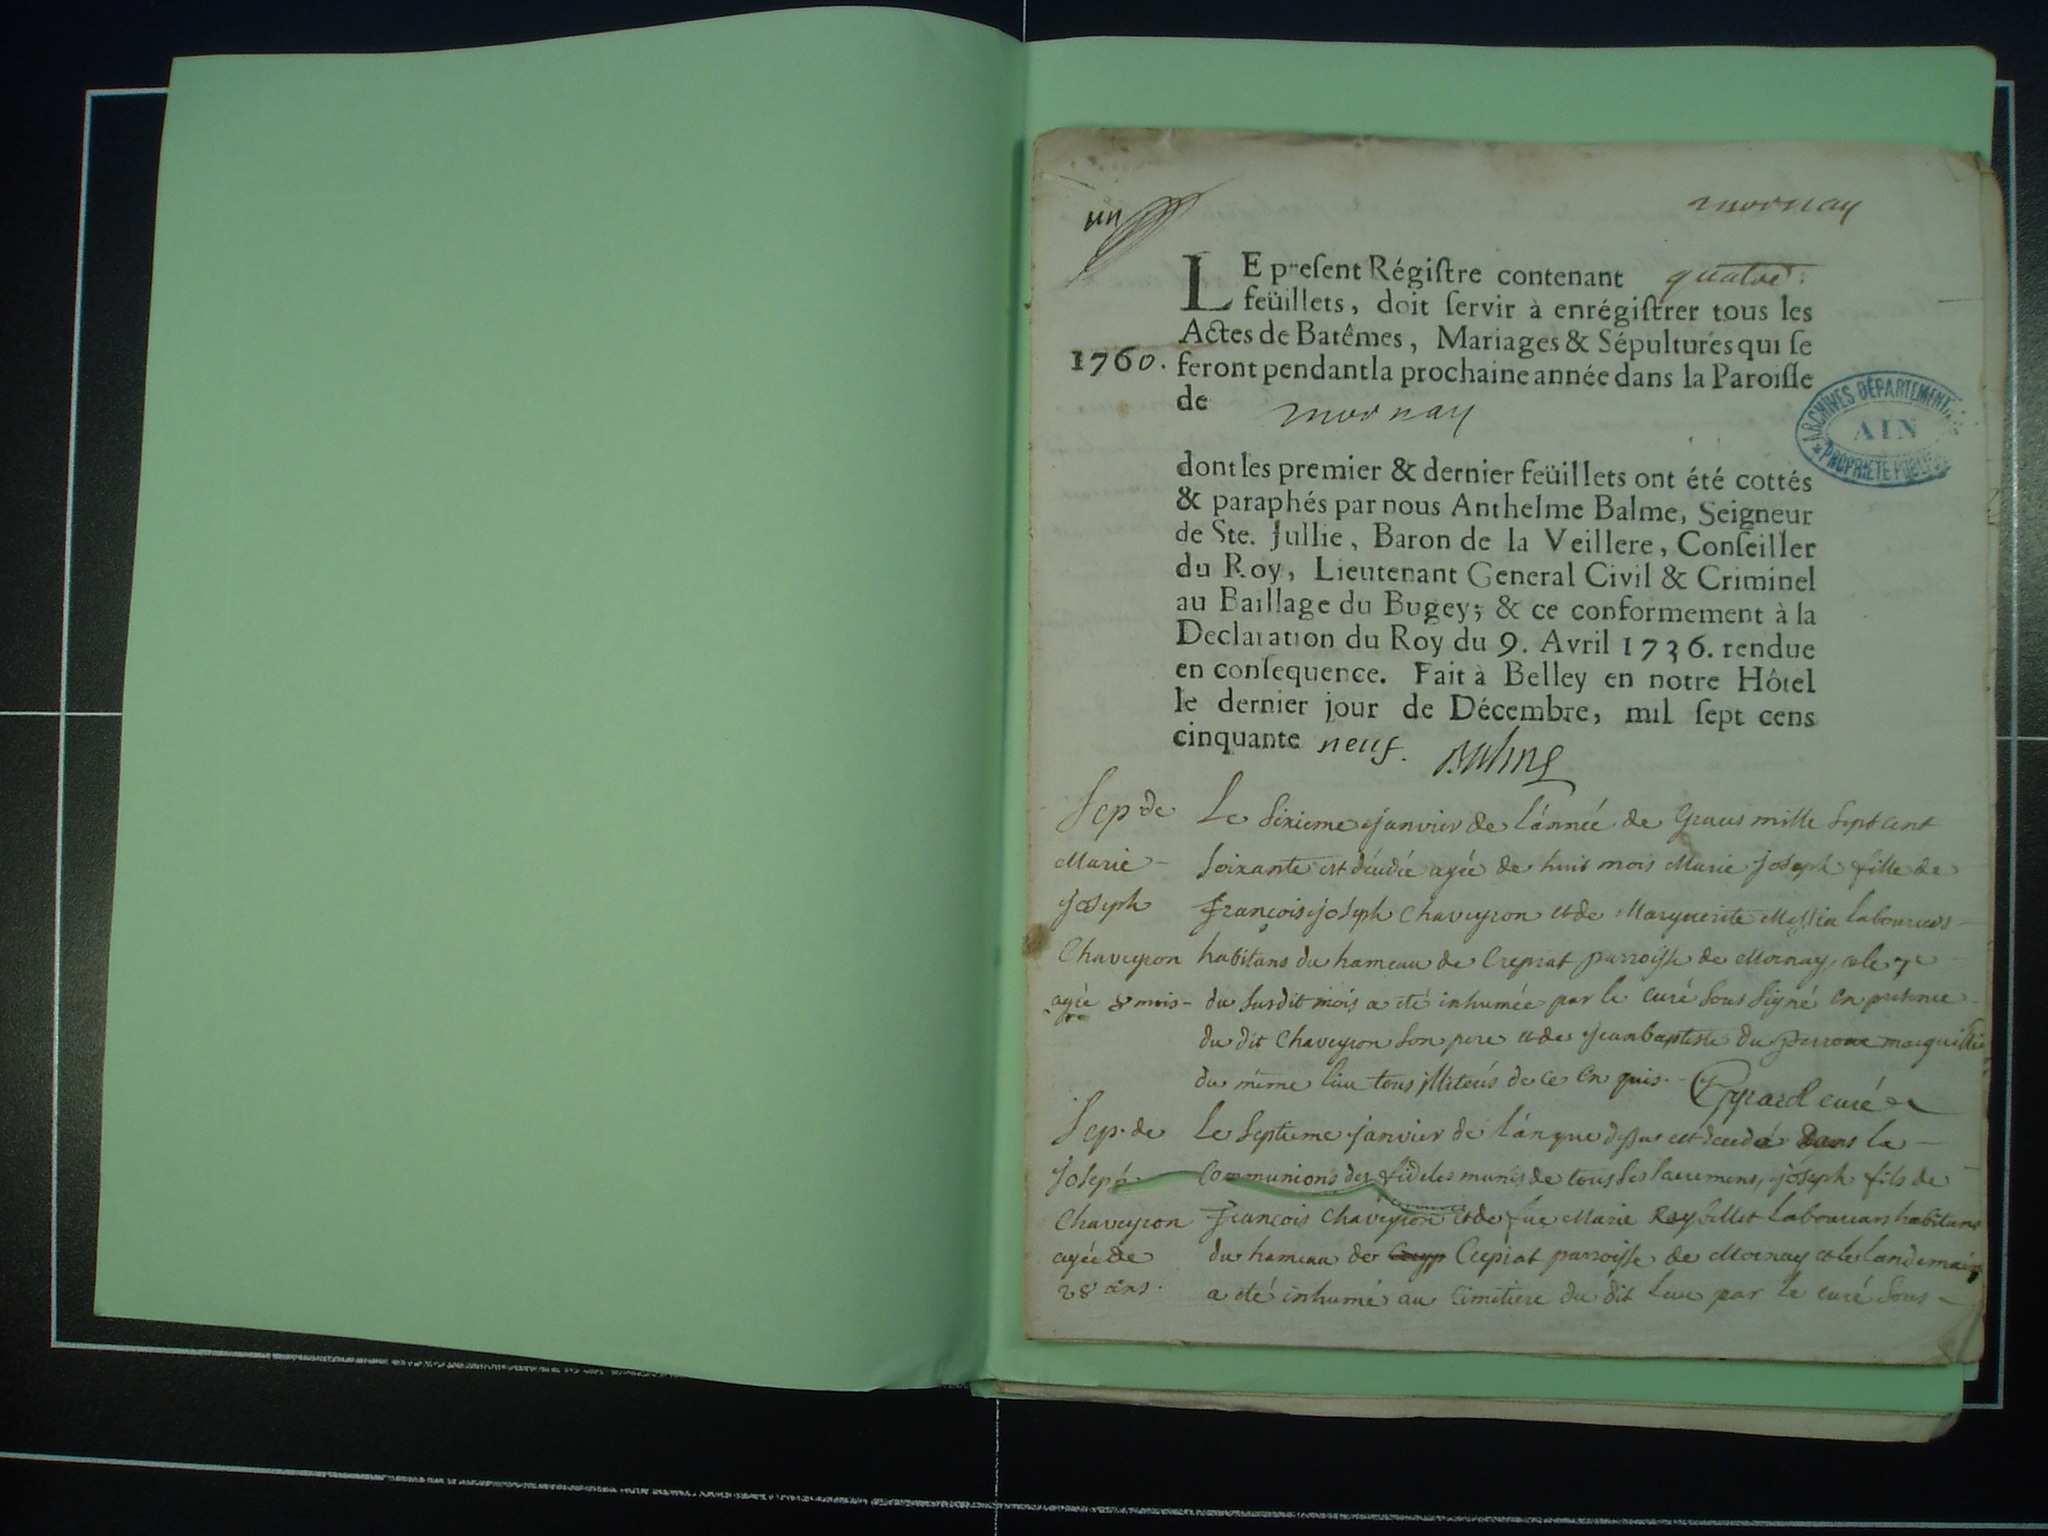 un
mornay
LE present Régistre contenant quatre
feüillets, doit servir à enrégistrer tous les
Actes de Batêmes, Mariages & Sépultures qui se
1760. feront pendant la prochaine année dans la Paroisse
de mornay
ARCHIVES DÉPARTEMENT
AIN
PROPRIÉTÉ PUBLIQUE
dont les premier & dernier feüillets ont été cottés
& paraphés par nous Anthelme Balme, Seigneur
de Ste. Jullie, Baron de la Veillere, Conseiller
du Roy, Lieutenant General Civil & Criminel
au Baillage du Bugey; & ce conformement à la
Declaration du Roy du 9. Avril 1736. rendue
en consequence. Fait à Belley en notre Hôtel
le dernier jour de Décembre, mil sept cens
cinquante neuf. Balme
Sep. de
Marie
joseph
Chaveyron
agée 8 mois
Le Sixieme janvier de l'année de Grace mille Sept cent
Soixante est décédée agée de huit mois Marie joseph fille de
françois joseph Chaveyron et de Marguerite Messia laboureurs
habitans du hameau de Crepiat parroisse de Mornay et le 7e
du Susdit mois a été inhumée par le curé Sous Signé en presence
du dit Chaveyron Son pere et de jean baptiste du perroue marguillier
du même lieu tous illiterés de ce enquis. Gyrard curé
Sep. de
joseph
Chaveyron
agée de
28 ans.
Le Septieme janvier de l'an que dessus est decedé Dans la
Communions des fideles munis de tous les Sacremens, joseph fils de
françois Chaveyron et de füe Marie Reybillet Laboureurs habitans
du hameau de Crepiat parroisse de Mornay et le landemain
a été inhumé au Cimetiere du dit lieu par le curé Sous